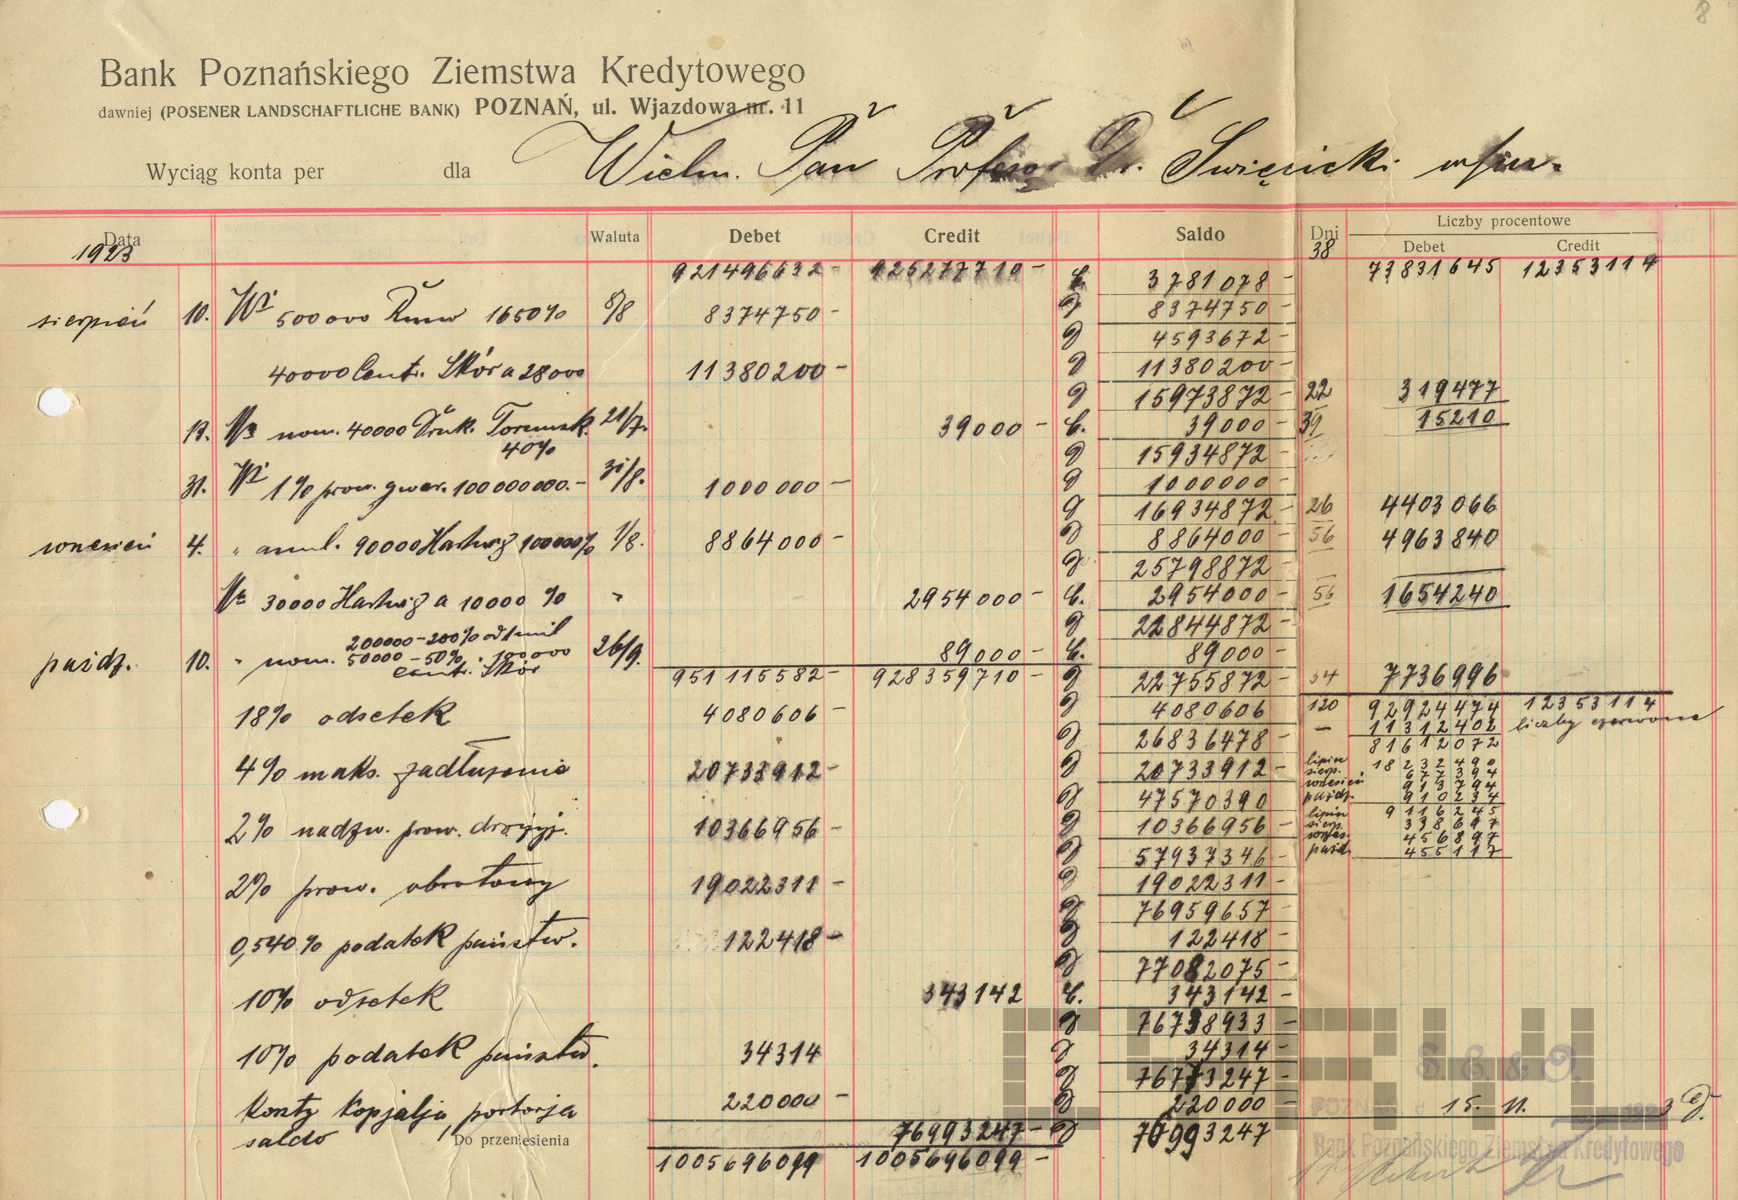 8
Bank Poznańskiego Ziemstwa Kredytowego
dawniej (POSENER LANDSCHAFTLICHE BANK) POZNAŃ, ul. Wjazdowa nr. 11
Wyciąg konta per dla Wielm. Pan Profesor Dr. Święcicki
Data Waluta Debet Credit Saldo Dni Liczby procentowe
1923 38 Debet Credit
921496632- 925277710- C. 3781078- 73831645 12353114
sierpień 10. 500000 1650% 8/8 8374750- D 8374750-
D 4593672-
40000 Centr. Skór a 28000 11380200- D 11380200-
D 15973872- 22 319477
nom. 40000 Druk. Toruńsk. 21/7. 39000- C. 39000- 39 15210
40%
D 15934872-
31. 1% prow. gwar. 100000000.- 31/8. 1000000- D 1000000-
D 16934872- 26 4403066
wrzesień 4. " 90000 Hartwig 100000% 1/8. 8864000- D 8864000- 56 4963840
D 25798872-
30000 Hartwig a 10000% " 2954000- C. 2954000- 56 1654240
D 22844872-
200000-200%
paźdz. 10. " nom. 50000-50% " 100000 26/9. 89000- C. 89000-
Centr. Skór
951115582- 928359710- D 22755872- 34 7736996
18% odsetek 4080606- D 4080606 120 92924474 12353114
D 26836478- - 11312402 liczby czerwone
81612072
4% maks. zadłużenia 20733912- D 20733912- lipiec 18232490
sierp. 677394
D 47570390 wrzesień 913794
paźdz. 910234
2% nadzw. prow. 10366956- D 10366956- lipiec 9116245
sierp. 338697
wrześ. 456897
D 57937346- paźd. 455117
2% prow. obrotowy 19022311- D 19022311-
D 76959657-
0,540% podatek państw. 122418- D 122418-
D 77082075-
10% odsetek 343142 C. 343142-
D 76738933-
10% podatek państw. 34314 D 34314-
D 76773247-
Konty Kopjalja portorja 220000- D 220000-
15. 11. 1923
saldo Do przeniesienia 76993247- D 76993247
1005696099 1005696099-
S. E. & O.
POZNAŃ, d.
Bank Poznańskiego Ziemstwa Kredytowego